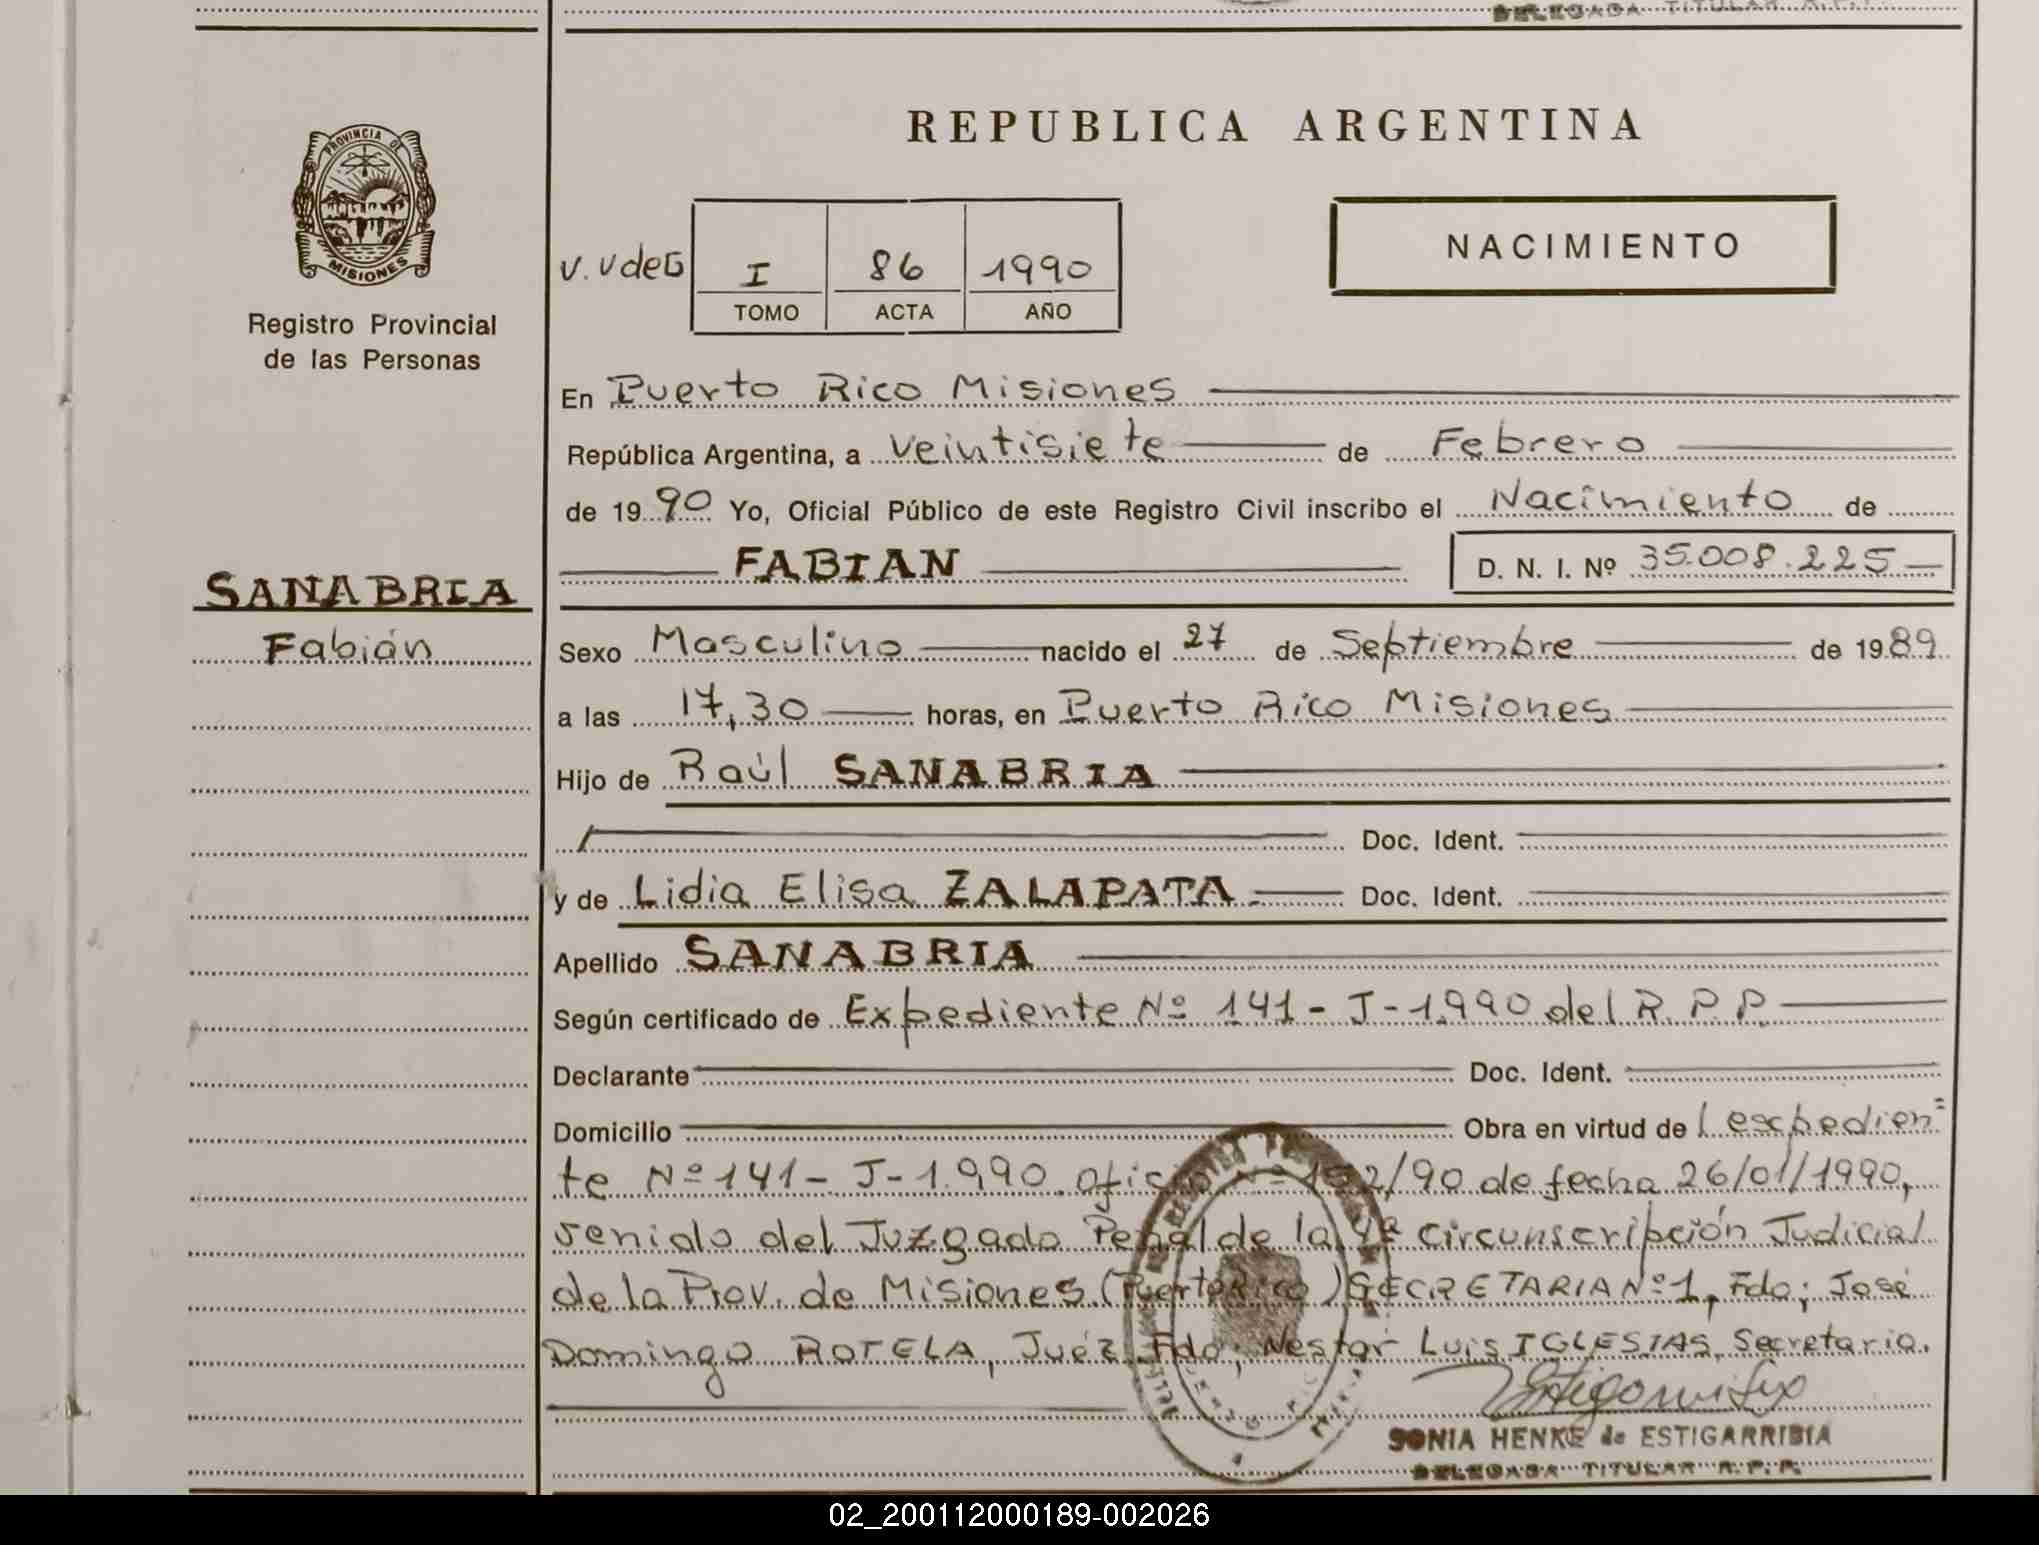 DELEGADA TITULAR R.P.P.
PROVINCIA DE
MISIONES
Registro Provincial
de las Personas
SANABRIA
Fabián
REPUBLICA ARGENTINA
NACIMIENTO
V. V de G I 86 1990
TOMO ACTA AÑO
En Puerto Rico Misiones
República Argentina, a veintisiete de Febrero
de 1990 Yo, Oficial Público de este Registro Civil inscribo el Nacimiento de
FABIAN D. N. I. Nº 35.008.225
Sexo Masculino nacido el 27 de Septiembre de 1989
a las 17,30 horas, en Puerto Rico Misiones
Hijo de Raúl SANABRIA
Doc. Ident.
y de Lidia Elisa ZALAPATA Doc. Ident.
Apellido SANABRIA
Según certificado de Expediente Nº 141-J-1.990 del R.P.P.
Declarante Doc. Ident.
Domicilio Obra en virtud de l expedien=
te Nº 141-J-1.990. oficio Nº 192/90 de fecha 26/01/1990,
venido del Juzgado Penal de la 4ª Circunscripción Judicial
de la Prov. de Misiones (Puerto Rico) SECRETARIA Nº 1, Fdo; José
Domingo ROTELA, Juéz Fdo; Nestor Luis IGLESIAS, Secretario.
SONIA HENKE de ESTIGARRIBIA
DELEGADA TITULAR R.P.P.
02_200112000189-002026